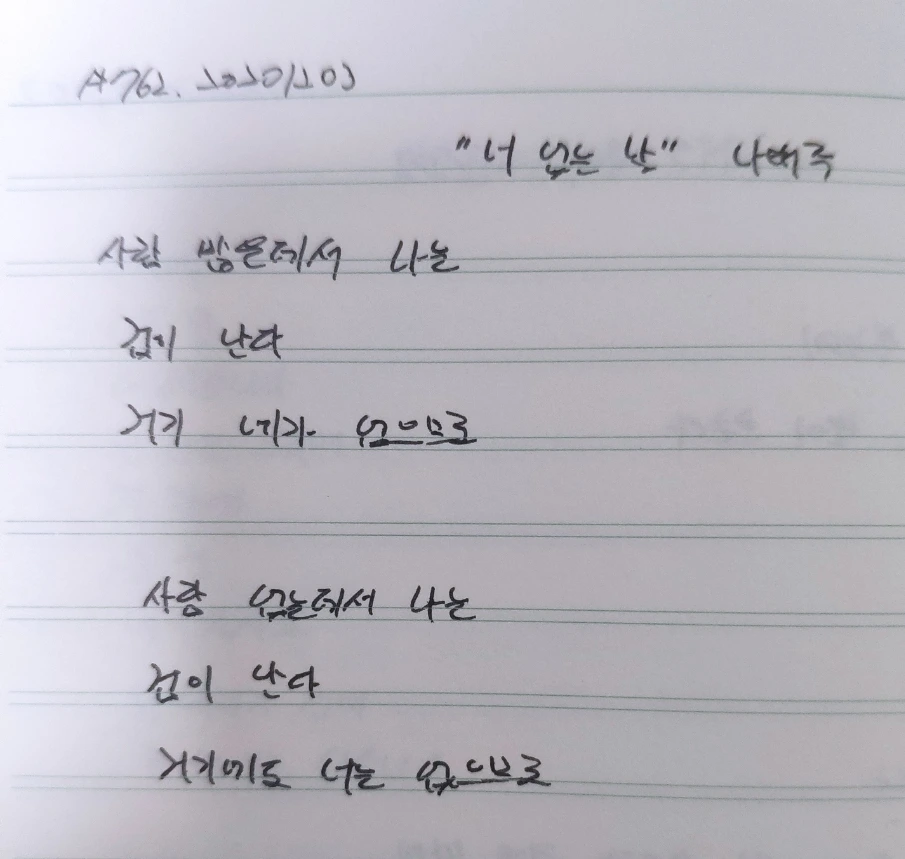 A762. 20201203
"너 없는 날" 나태주
사람 많은데서 나는
겁이 난다
거기 네가 없으므로
사람 없는데서 나는
겁이 난다
거기에도 너는 없으므로